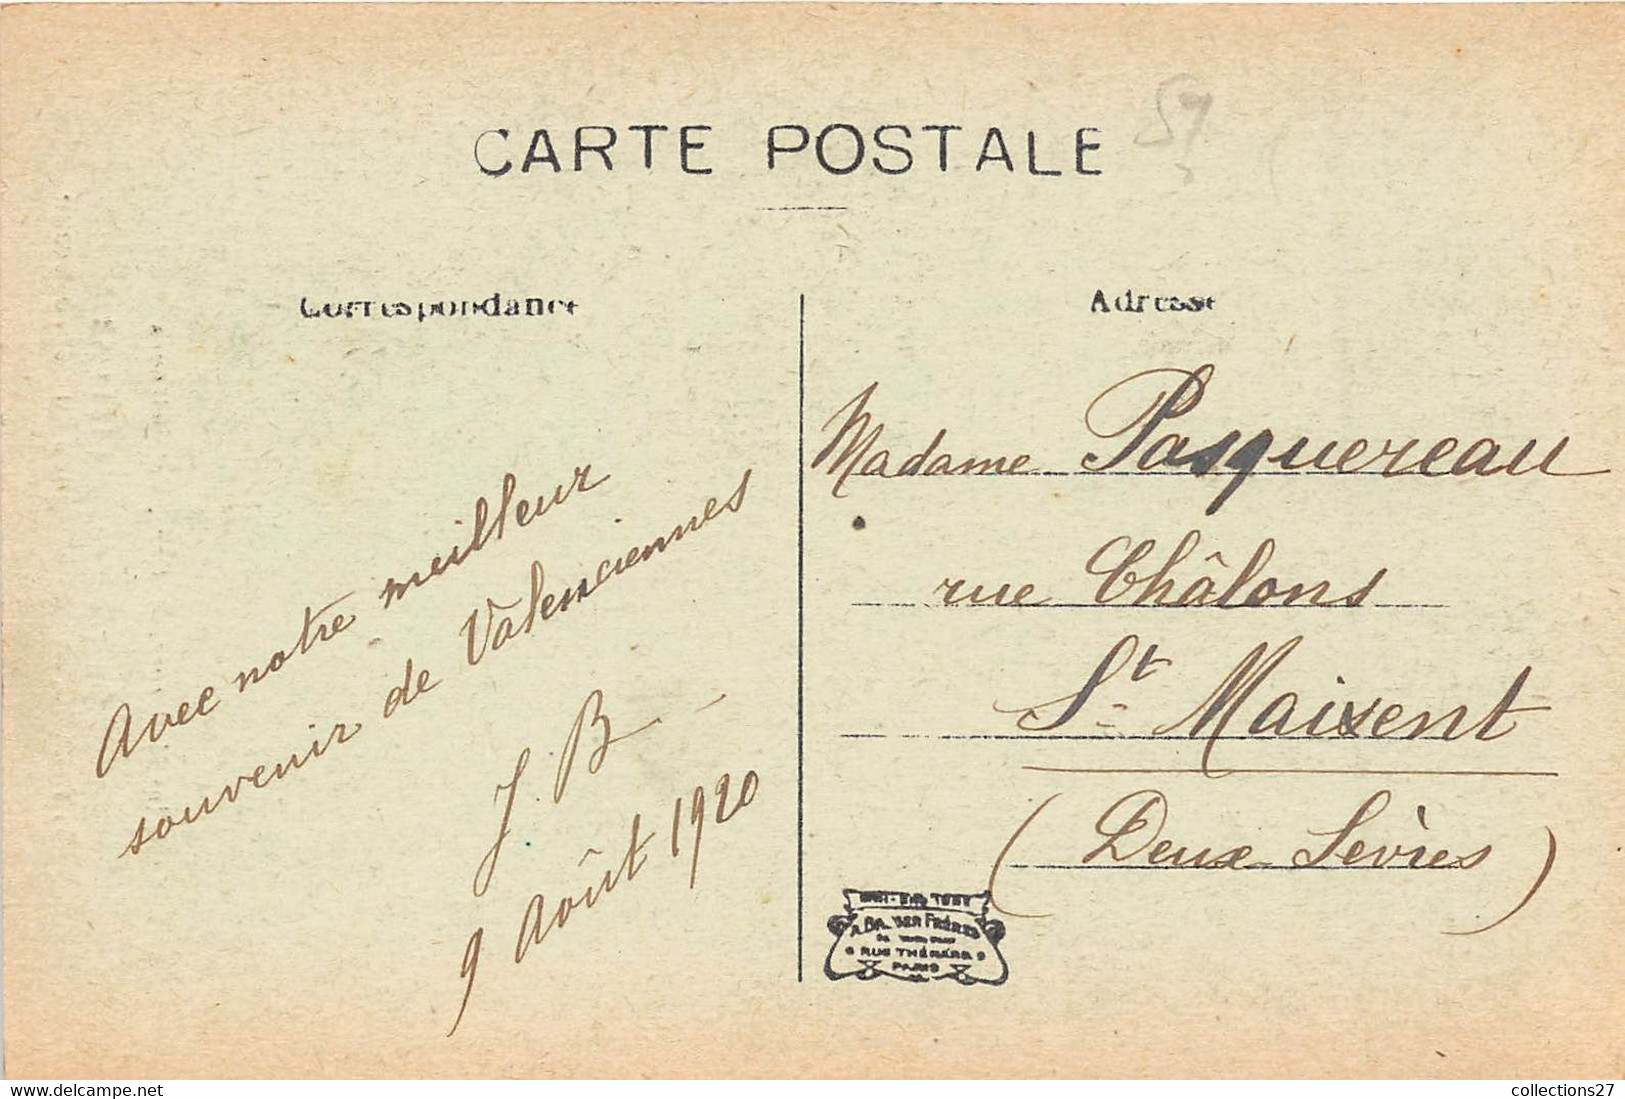 CARTE POSTALE
57
Correspondance
Avec notre meilleur
souvenir de Valenciennes
J. B
9 Août 1920
Adresse
Madame Pasquereau
rue Châlons
St Maixent
(Deux Sèvres)
FRÈRES
RUE THÉNARD 9
PARIS
www.delcampe.net
collections27